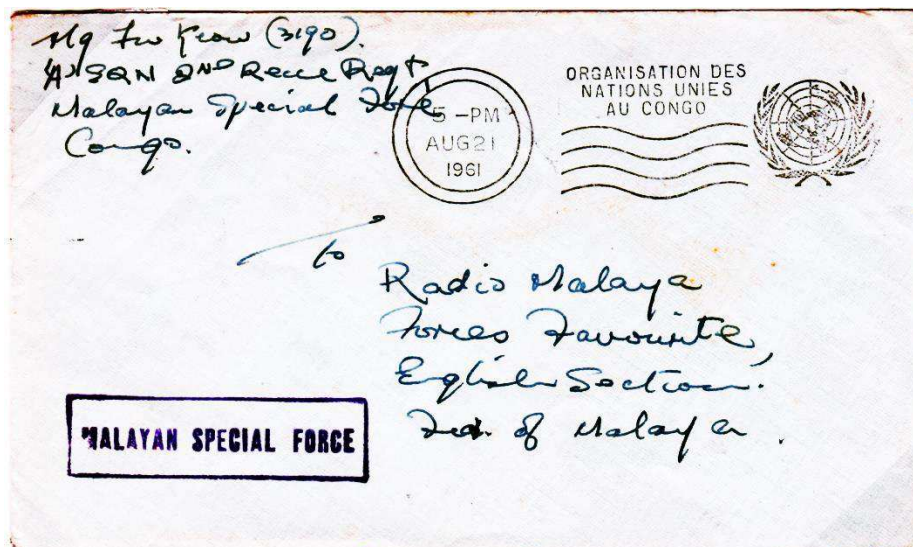 Ng Fu Keow (3190).
'A' SQN 2ND Recce Regt
Malayan Special Force
Congo.
5 -PM
AUG 21
1961
ORGANISATION DES
NATIONS UNIES
AU CONGO
to
Radio Malaya
Forces Favourite,
English Section.
Fed. of Malaya.
MALAYAN SPECIAL FORCE